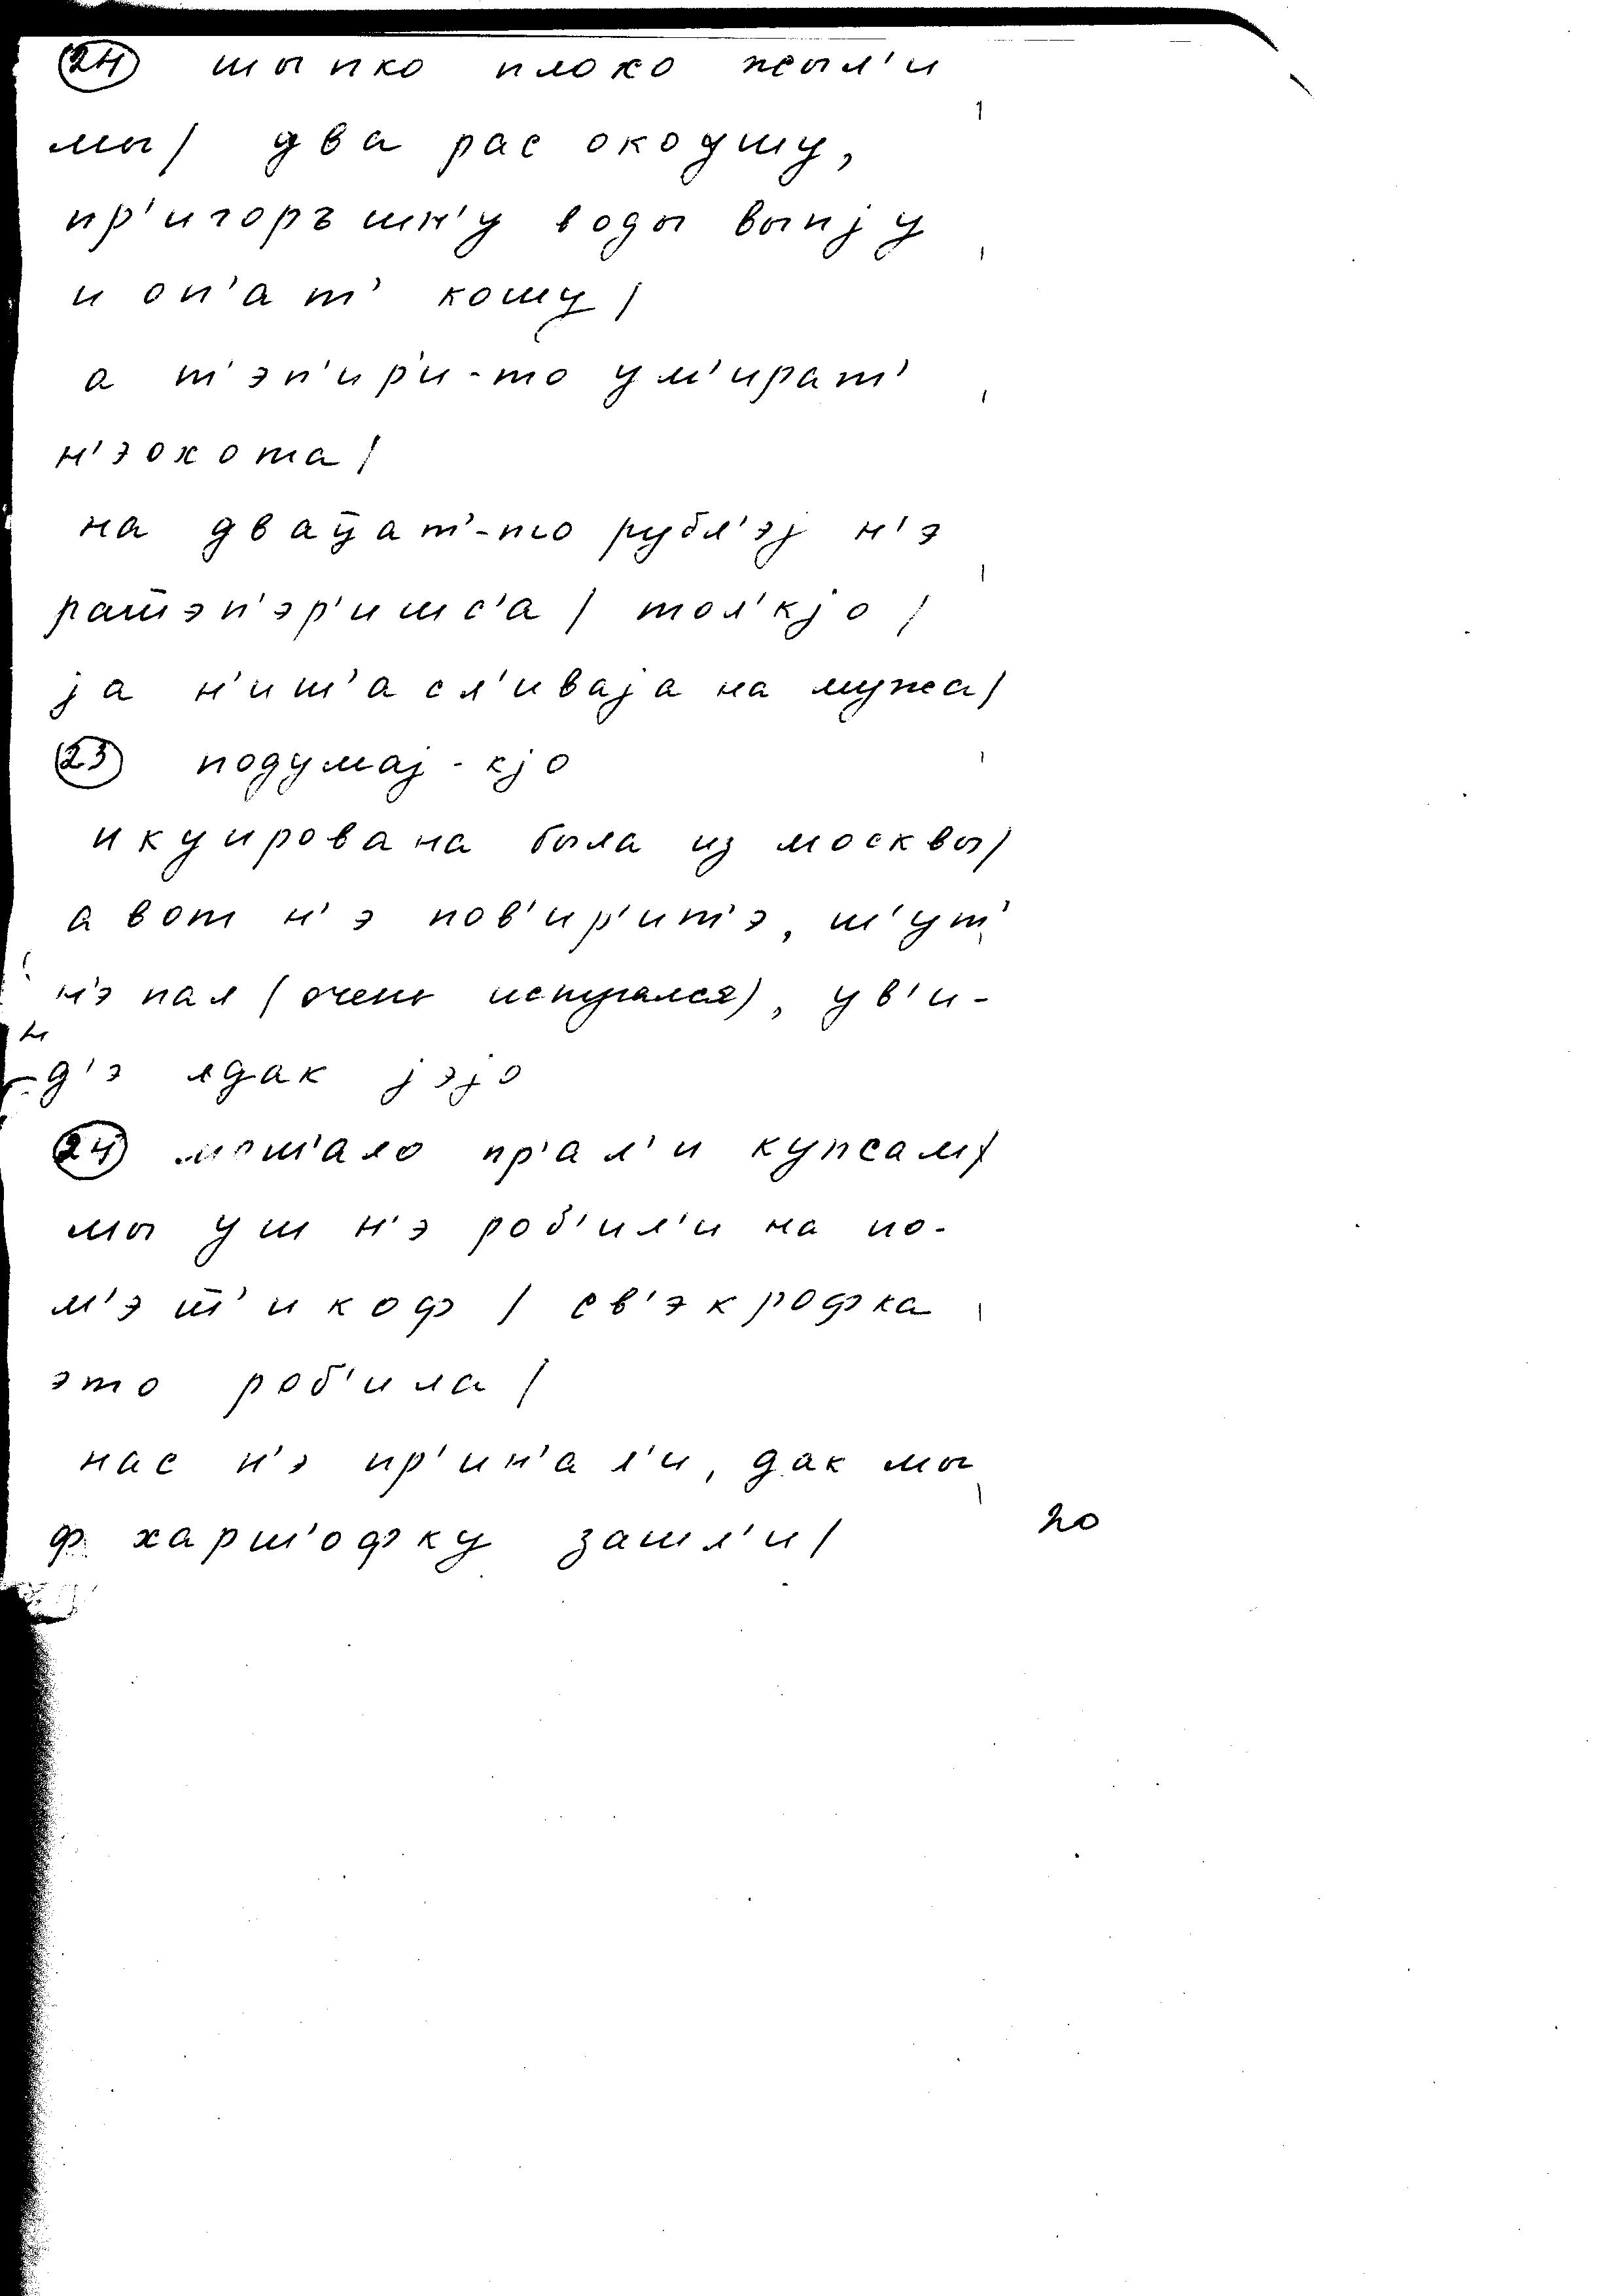 (24) шыпко плохо жыл'и
мы / два рас окошу,
пр'игоръшн'у воды выпjу
и оп'ат' кошу /
а т'эп'ир'и-то ум'ират'
н'эохота /
на двац̄ат'-то рубл'эj н'э
раш̄эп'эр'ишс'а / тол'кjо /
jа н'иш'асл'иваjа на мужа /
(23) подумаj-кjо
икуирована была из москвы /
а вот н'э пов'ир'ит'э, ш'ут'
н'э пал (очень испугался), ув'и-
д'эл дак jэjо
(24) моч'ало пр'ал'и купсам /
мы уш н'э роб'ил'и на по-
м'эш̄'икоф / св'экрофка
это роб'ила /
нас н'э пр'ин'ал'и, дак мы
ф харш'офку зашл'и /
20